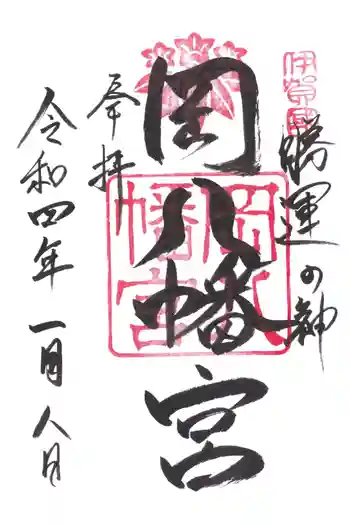 伊賀國
勝運の神
岡八幡宮
岡八
幡宮
奉拝
令和四年 一月八日